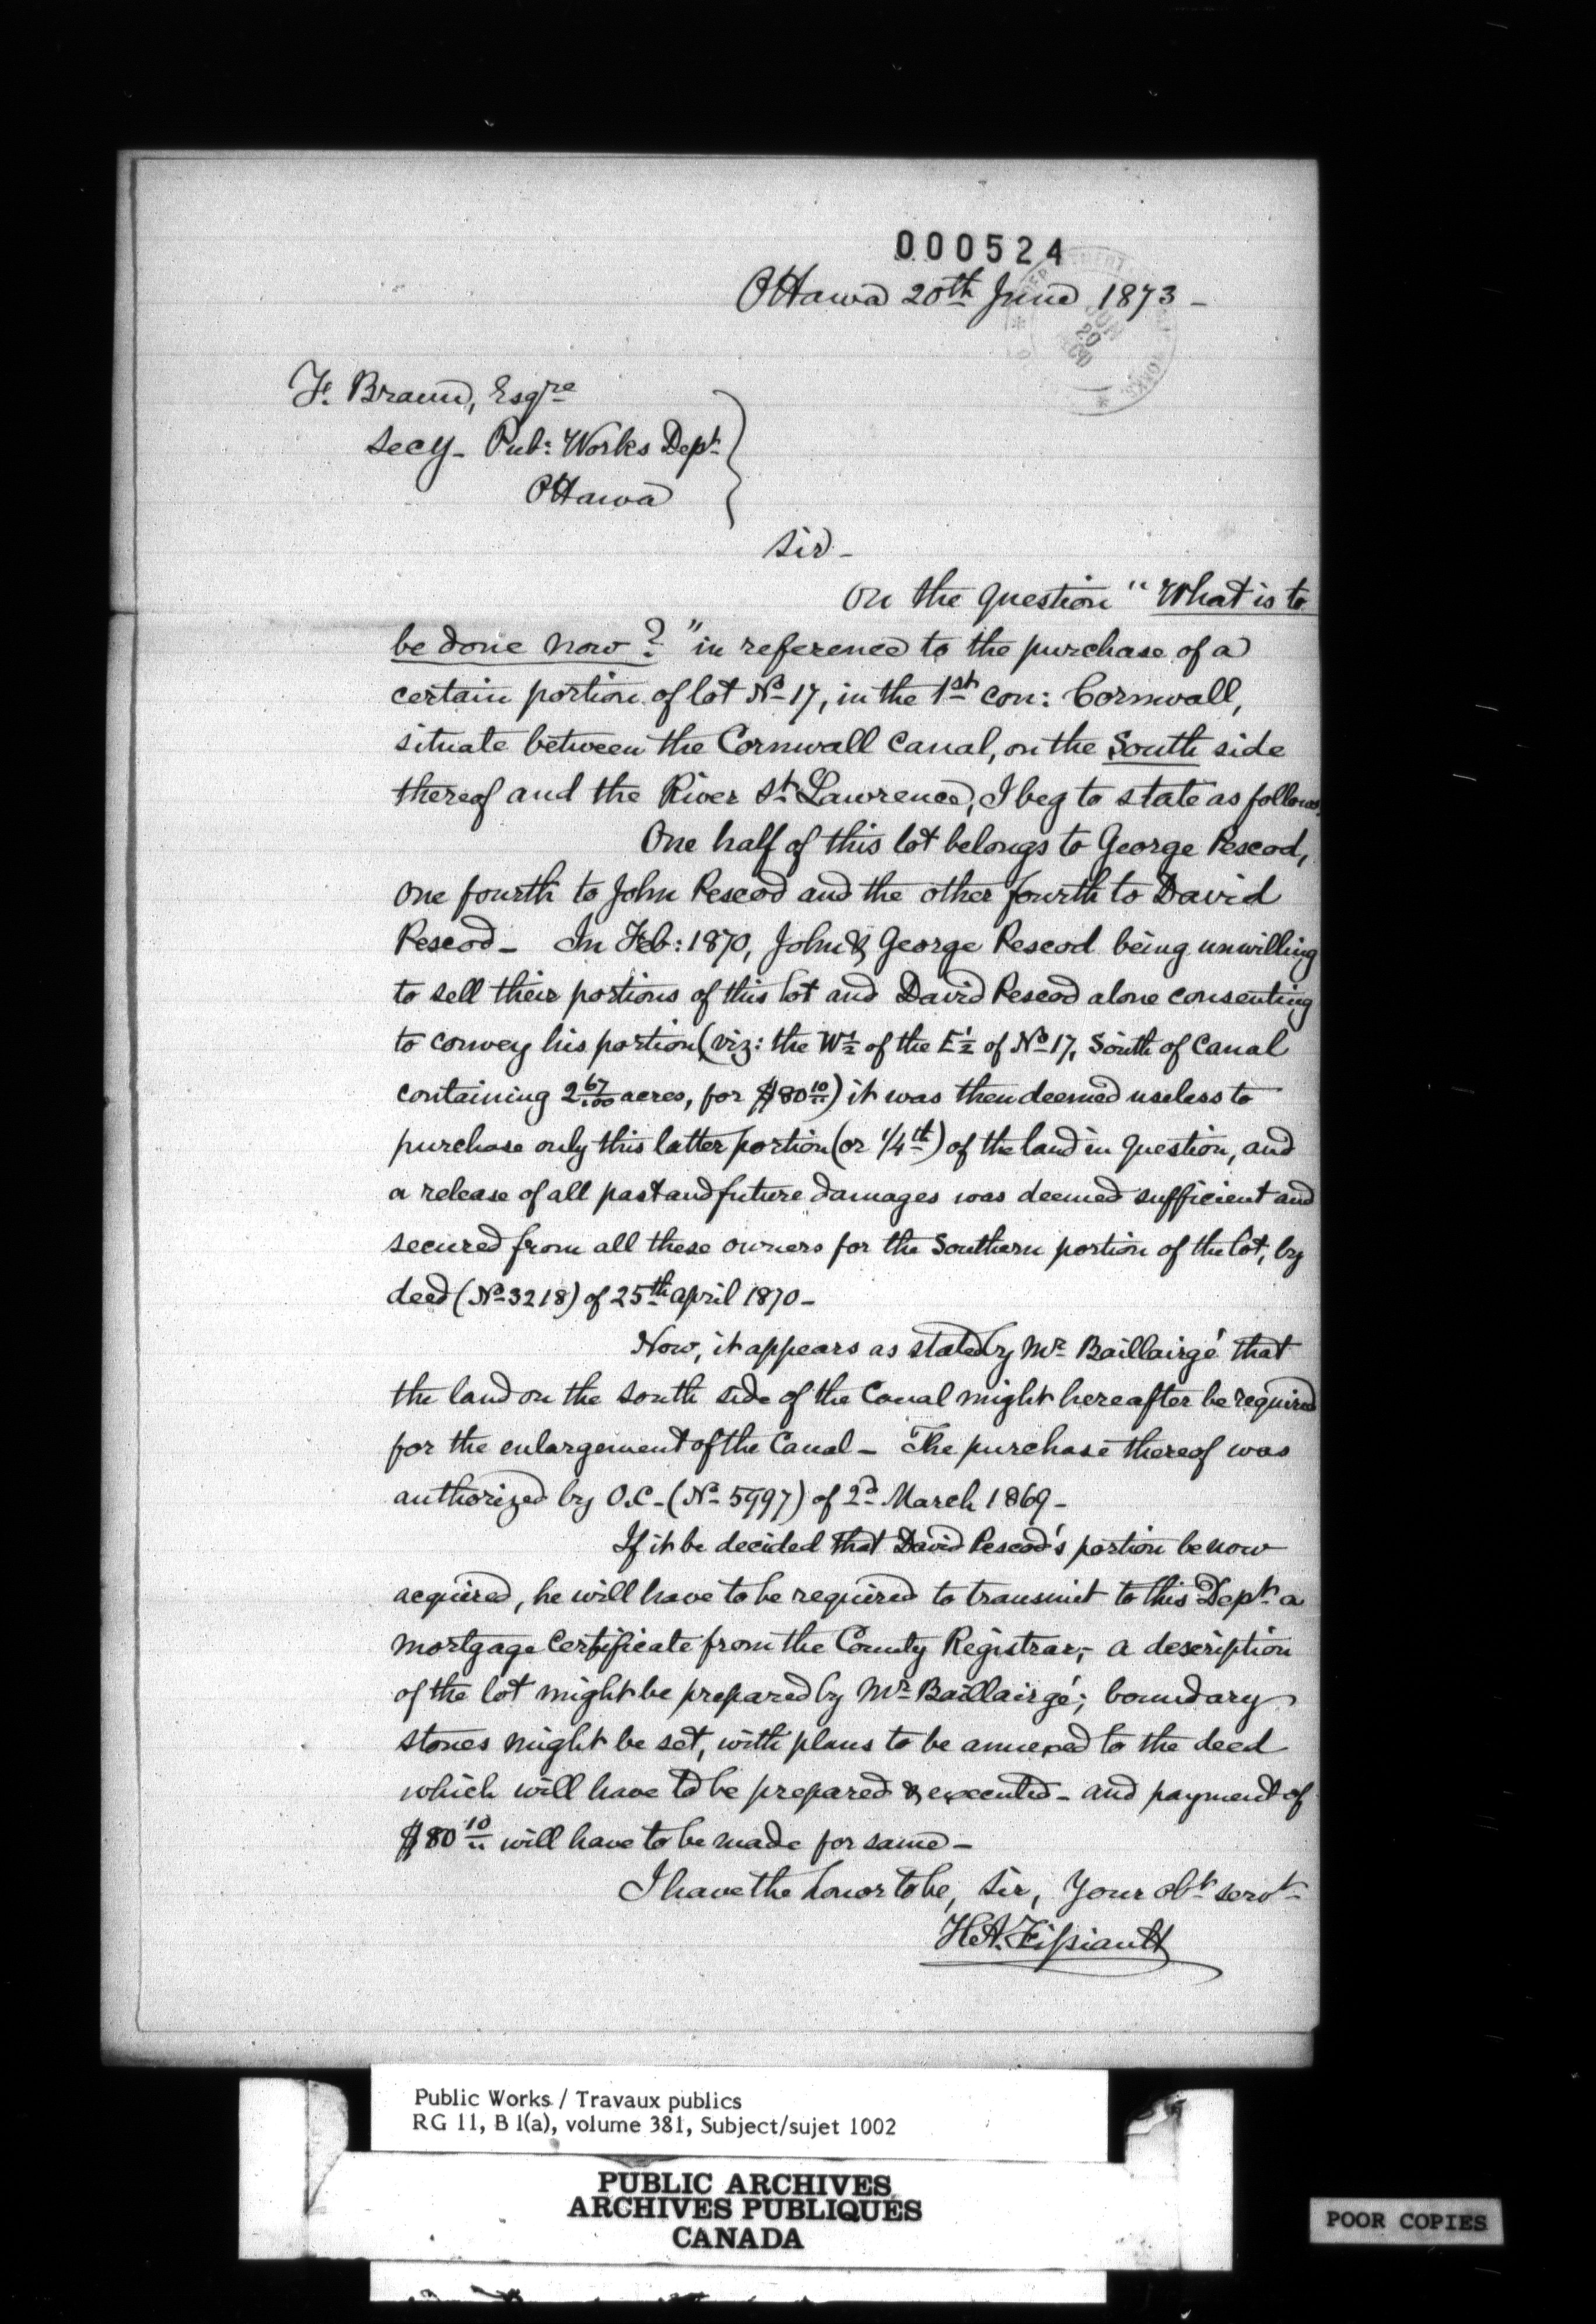 000524
Ottawa 20th June 1873 -
JUN
20
F. Braun, Esqre
Secy - Pub: Works Dept
Ottawa
Sir -
On the question "What is to
be done now?" in reference to the purchase of a
certain portion of lot No 17, in the 1st con: Cornwall,
situate between the Cornwall Canal, on the South side
thereof and the River St Lawrence, I beg to state as follows.
One half of this lot belongs to George Pescod,
one fourth to John Pescod and the other fourth to David
Pescod - In Feb: 1870, John & George Pescod being unwilling
to sell their portions of this lot and David Pescod alone consenting
to convey his portion (viz: the W½ of the E½ of No 17, South of Canal
containing 2 67/100 acres, for $80 10/..) it was then deemed useless to
purchase only this latter portion (or 1/4th) of the land in question, and
a release of all past and future damages was deemed sufficient and
secured from all these owners for the Southern portion of the lot, by
deed (No 3218) of 25th april 1870 -
Now, it appears as stated by Mr Baillairgé that
the land on the South side of the Canal might hereafter be required
for the enlargement of the Canal - The purchase thereof was
authorized by O.C. - (No 5997) of 2d March 1869 -
If it be decided that David Pescod's portion be now
acquired, he will have to be required to transmit to this Dept a
mortgage Certificate from the County Registrar, - a description
of the lot might be prepared by Mr Baillairgé; boundary
stones might be set, with plans to be annexed to the deed
which will have to be prepared & executed - and payment of
$80 10/.. will have to be made for same -
I have the honor to be, Sir, Your obt servt
H.A. Fissiault
Public Works / Travaux publics
RG 11, B 1(a), volume 381, Subject/sujet 1002
PUBLIC ARCHIVES
ARCHIVES PUBLIQUES
CANADA
POOR COPIES